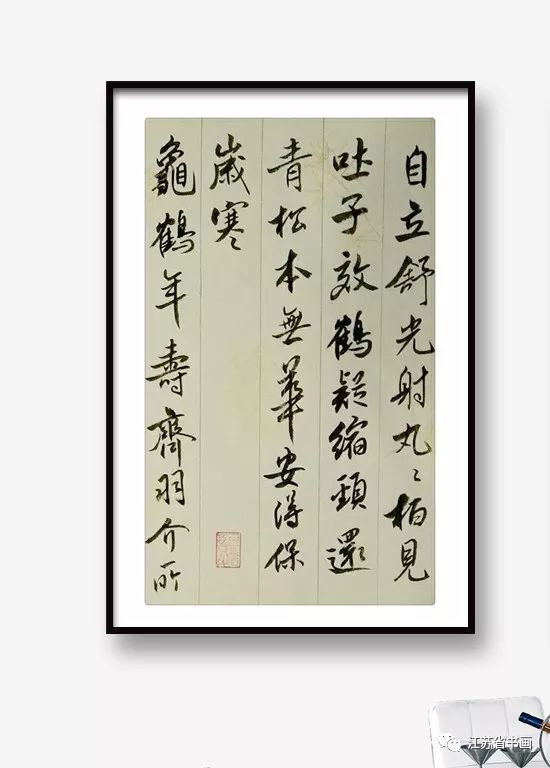 自立舒光射丸〻柏見
吐子效鶴疑縮頸還
青松本無華安得保
歲寒
龜鶴年壽齊羽介所
江苏省书画